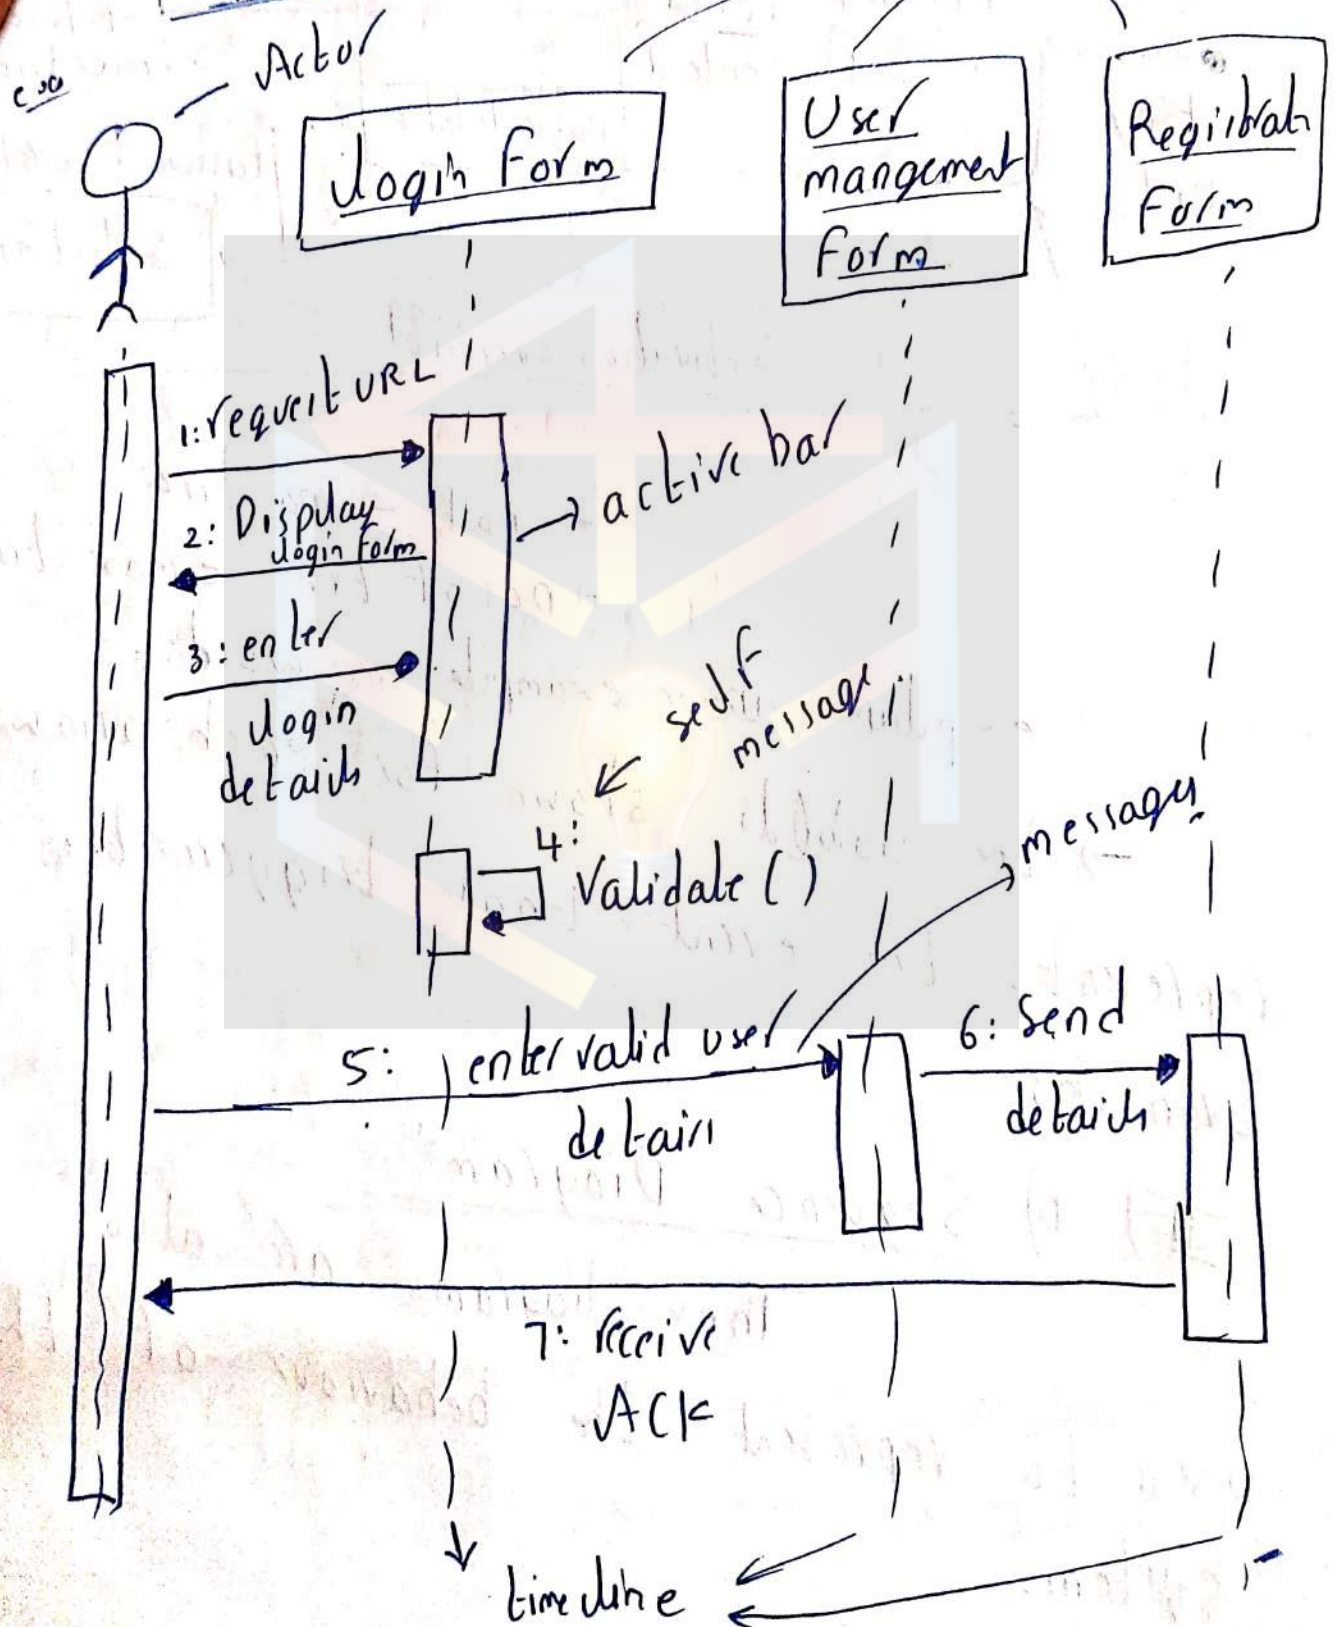 Actor
login Form
User
mangement
Form
Registrati
Form
1: request URL
2: Display
login Form
active bar
3: enter
login
details
self
message
4:
Validate ( )
messages
5: enter valid user
details
6: Send
details
7: receive
ACK
timeline